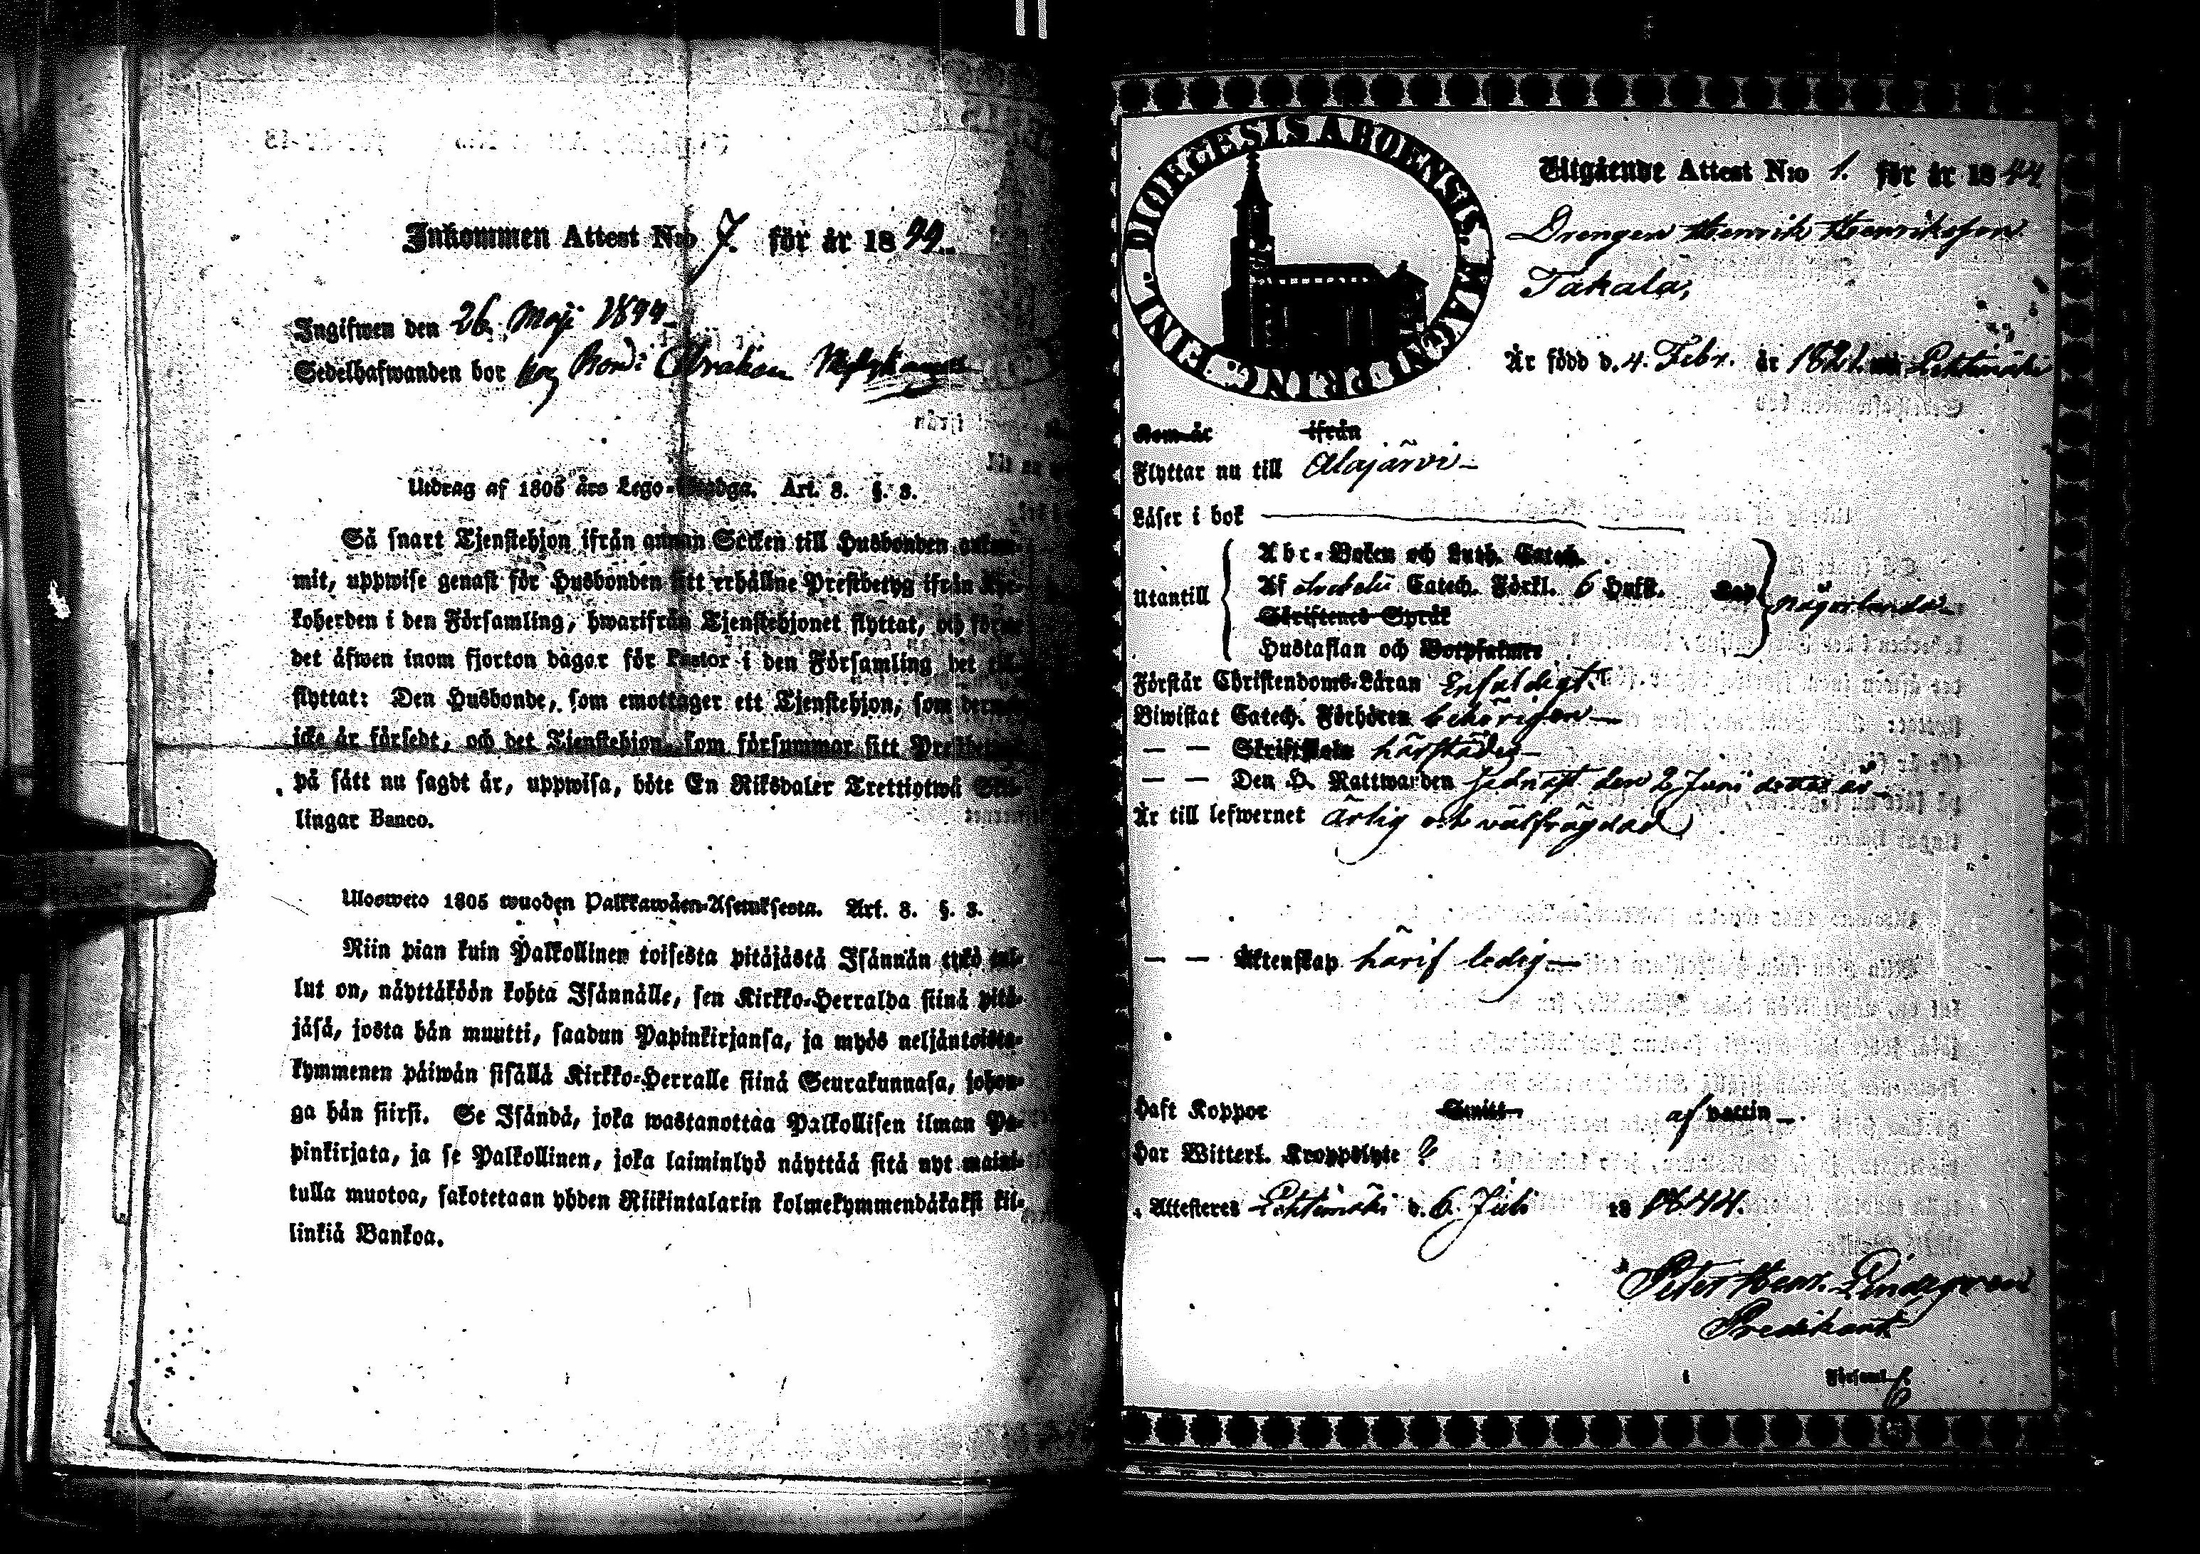 Inkommen Attest N:o 7. för år 1844.
Ingifwen den 26. Maji 1844
Sedelhafwanden bor hos Bond: Abraham
Utdrag af 1805 års Lego-Stadga. Art. 3. §. 3.
Så snart Tjenstehjon ifrån annan Socken till Husbonden ankom-
mit, uppwise genast för Husbonden sitt erhållne Prestbetyg ifrån Kyr-
koherden i den Församling, hwarifrån Tjenstehjonet flyttat, och förete
det äfwen inom fjorton dagar för Pastor i den Församling det till-
flyttat: Den Husbonde, som emottager ett Tjenstehjon, som dermed
icke är försedt, och det Tjenstehjon, som försummar sitt Prestbetyg
på sätt nu sagdt är, uppwisa, böte En Riksdaler Trettiotwå Skil-
lingar Banco.
Ulosweto 1805 wuoden Palkkawäen-Asetuksesta. Art. 3. §. 3.
Niin pian kuin Palkollinen toisesta pitäjästä Isännän tykö tul-
lut on, näyttäköön kohta Isännälle, sen Kirkko-Herralda siinä pitä-
jäsä, josta hän muutti, saadun Papinkirjansa, ja myös neljäntoista-
kymmenen päiwän sisällä Kirkko-Herralle siinä Seurakunnasa, johon-
ga hän siirsi. Se Isändä, joka wastanottaa Palkollisen ilman Pa-
pinkirjata, ja se Palkollinen, joka laiminlyö näyttää sitä nyt maini-
tulla muotoa, sakotetaan yhden Riikintalarin kolmekymmendäkaksi kil-
linkiä Bankoa.
DIOECESIS ABOENSIS. MAGNI PRINC. FINL.
Utgående Attest N:o 1. för år 1844.
Drengen Henrik Henriksson
Takala,
Är född d. 4. Febr. år 1821. Lehtimäki
Kom år ifrån
Flyttar nu till Alajärvi
Läser i bok
Utantill
Abc-Boken och Luth. Catech.
Af Catech. Förkl. 6 Hufst.
Skriftenes Språk
Hustaflan och Botpsalmer
någorlunda
Förstår Christendoms-Läran Enfaldigt.
Biwistat Catech. Förhören behörigen
— — Skriftskola härstädes
— — Den H. Nattwarden sednast den 2 Juni detta år
Är till lefwernet ärlig och välfrägdad
— — Äktenskap härif ledig
Haft Koppor Smitt af vaccin
Har Witterl. Kroppslyte ?
Attesteres Lehtimäki d. 6. Juli 18 1844.
Peter Henr. Lindegren
Predikant
i Församl.